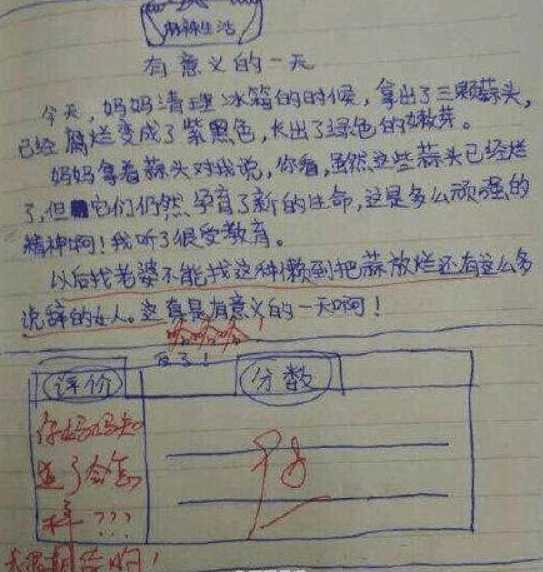 麻辣生活
有意义的一天
今天,妈妈清理冰箱的时候,拿出了三颗蒜头,
已经腐烂变成了紫黑色,长出了绿色的嫩芽。
妈妈拿着蒜头对我说,你看,虽然这些蒜头已经烂
了,但它们仍然孕育了新的生命,这是多么顽强的
精神啊!我听了很受教育。
以后找老婆不能找这种懒到把蒜放烂还有这么多
说辞的女人。这真是有意义的一天啊!
哈哈哈!
评价
分数
你妈妈知
道了会怎
样???
优